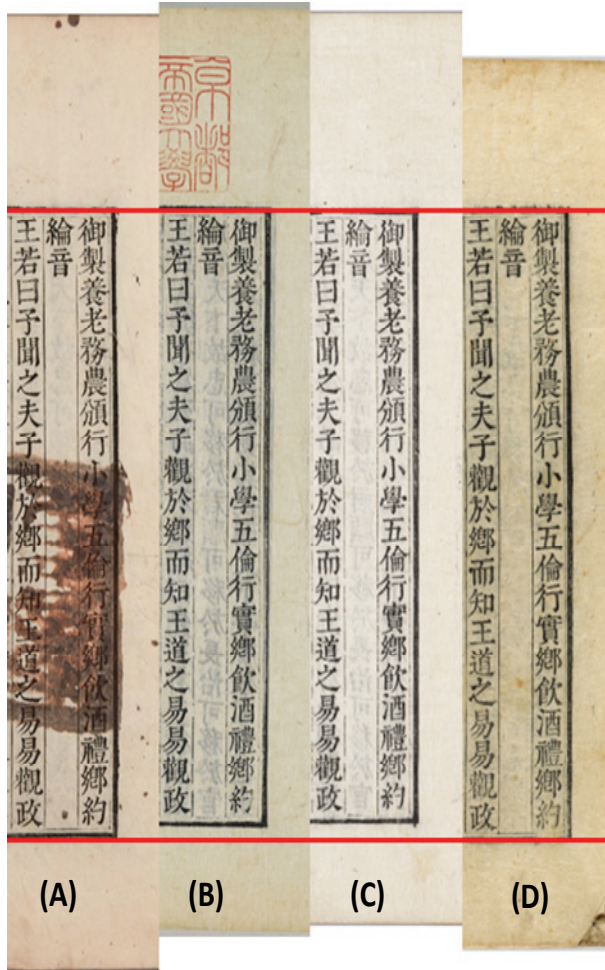 御製養老務農頒行小學五倫行實鄉飲酒禮鄉約
綸音
王若曰予聞之夫子觀於鄉而知王道之易易觀政
(A)
京都
帝國大學
御製養老務農頒行小學五倫行實鄉飲酒禮鄉約
綸音
王若曰予聞之夫子觀於鄉而知王道之易易觀政
(B)
御製養老務農頒行小學五倫行實鄉飲酒禮鄉約
綸音
王若曰予聞之夫子觀於鄉而知王道之易易觀政
(C)
御製養老務農頒行小學五倫行實鄉飲酒禮鄉約
綸音
王若曰予聞之夫子觀於鄉而知王道之易易觀政
(D)